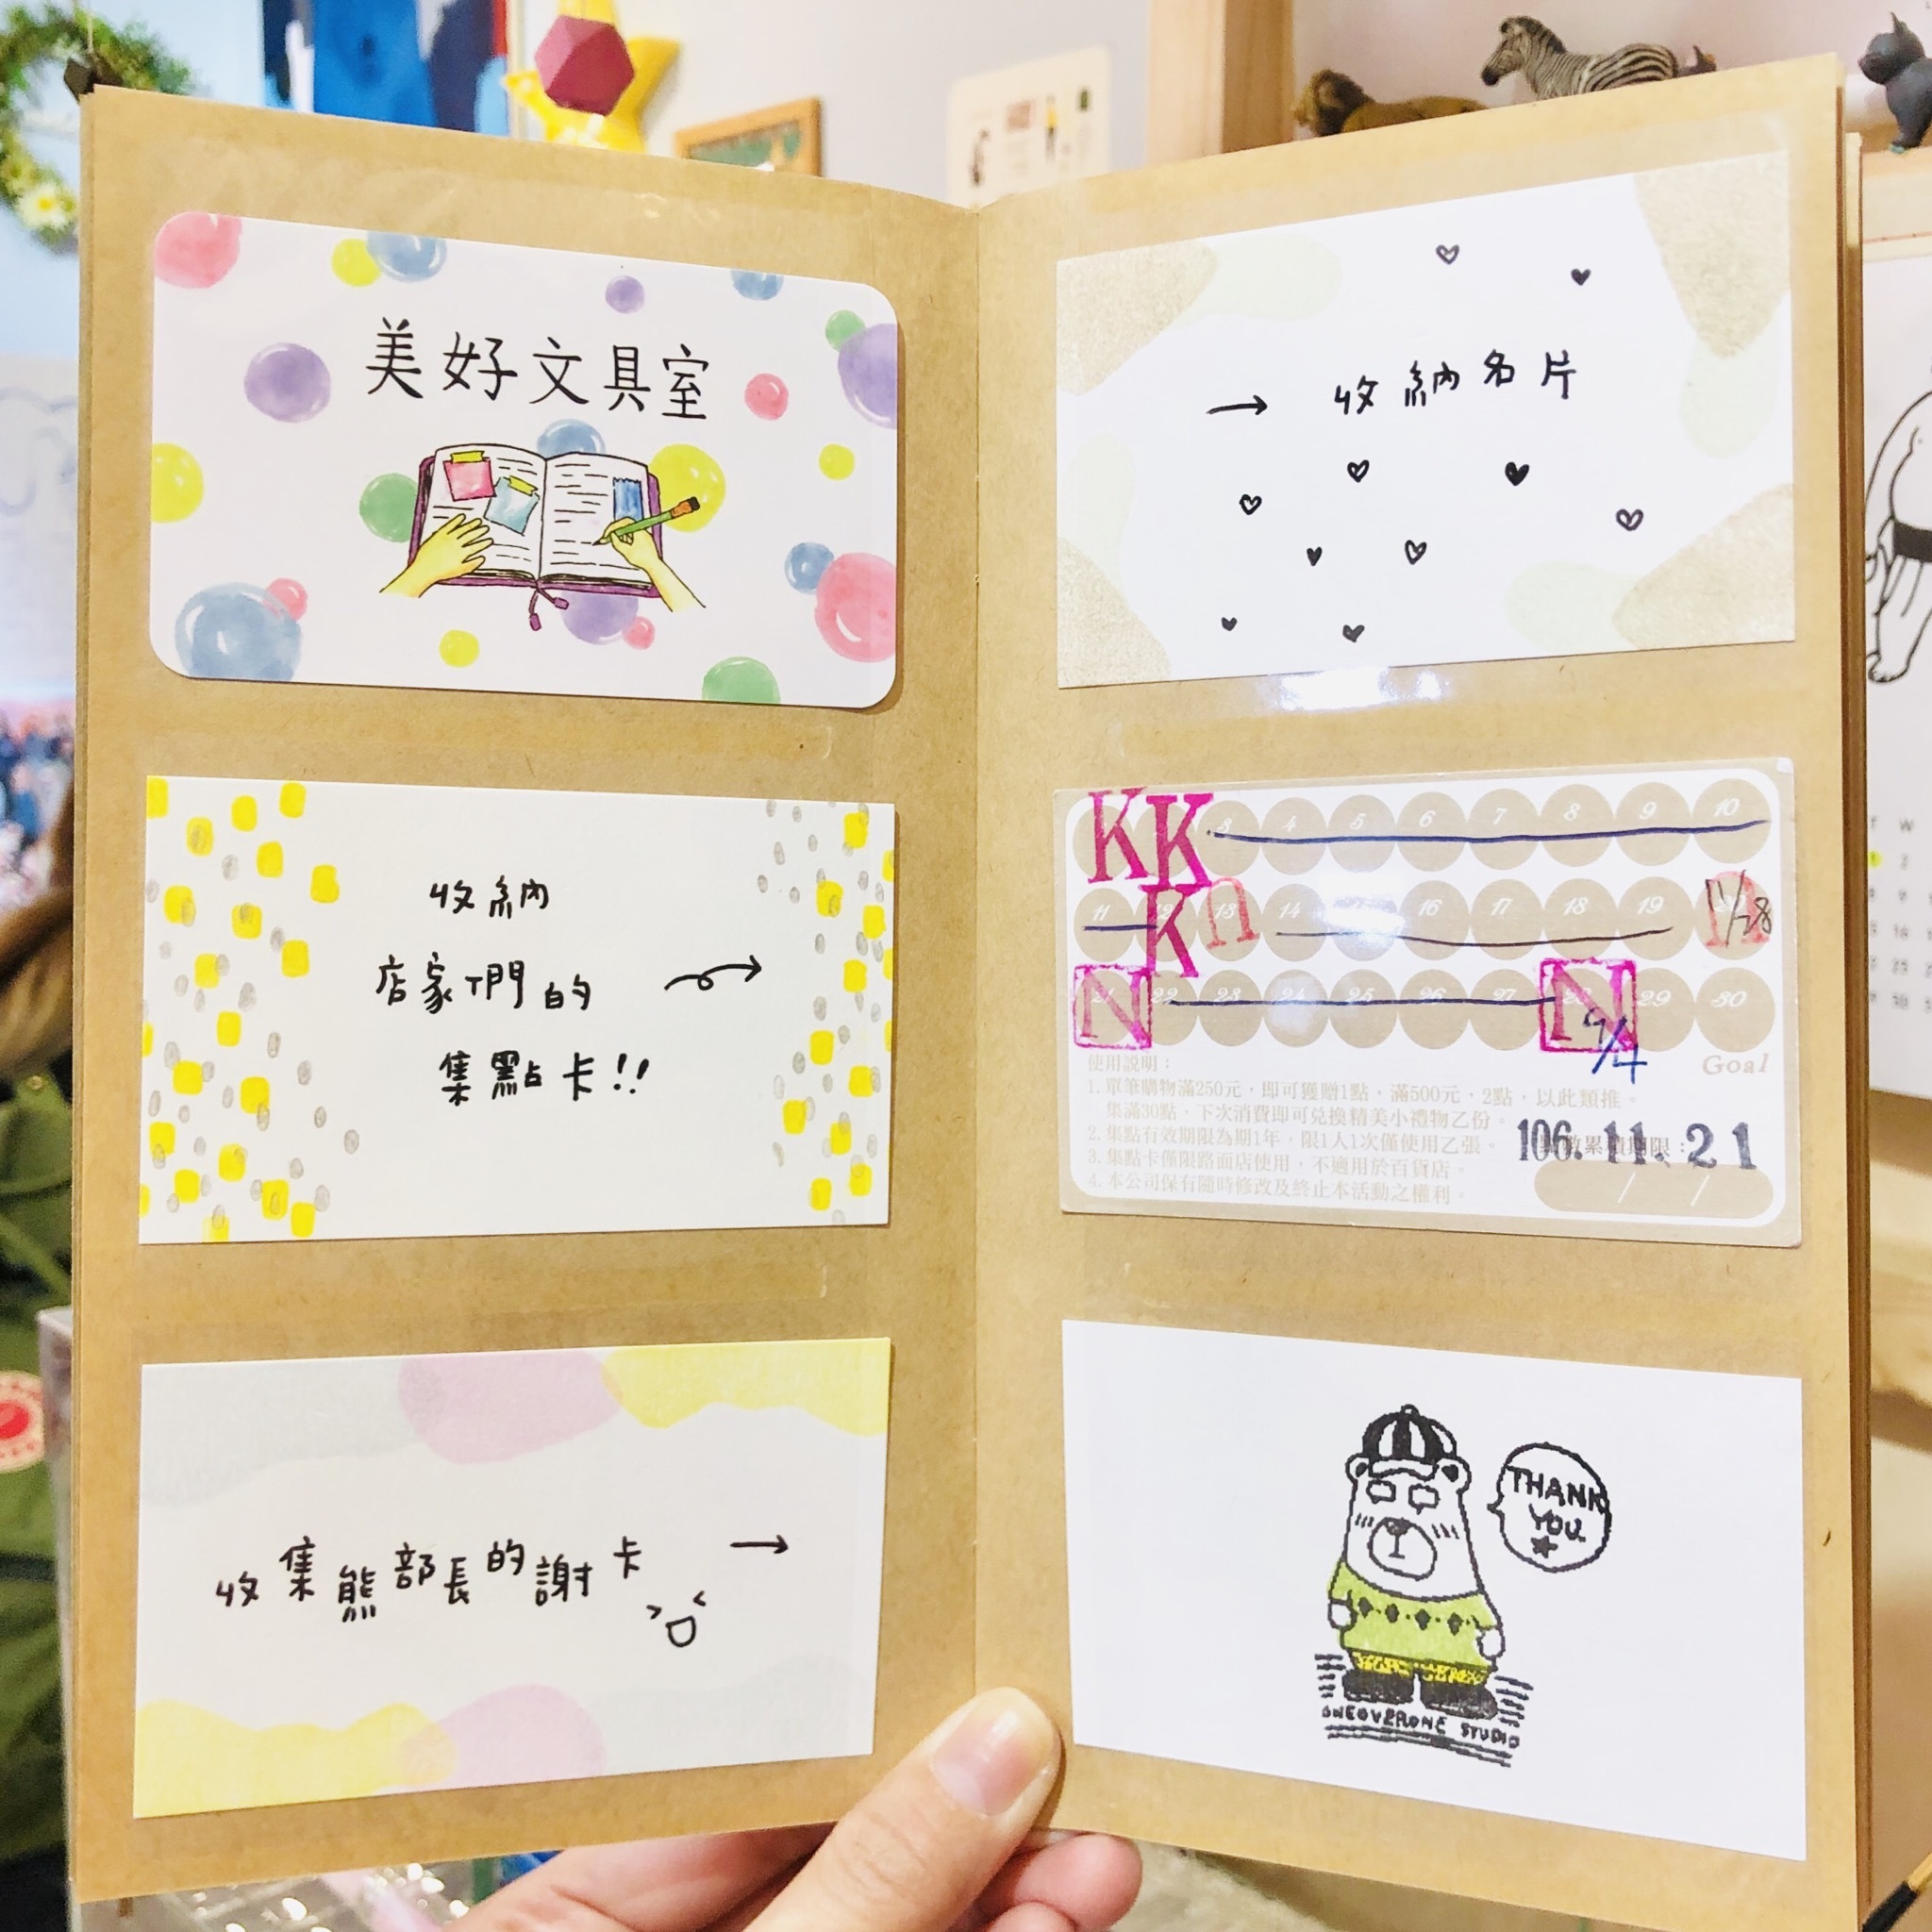 美好文具室
→ 收納名片
收納
店家們的
集點卡!!
KK 3 4 5 6 7 8 9 10
11 12 K 13 n 14 16 17 18 19 11/28
N 21 22 23 24 25 26 27 28 N 29 30
9/4
Goal
使用說明：
1.單筆購物滿250元，即可獲贈1點，滿500元，2點，以此類推。
集滿30點，下次消費即可兌換精美小禮物乙份。
2.集點有效期限為期1年，限1人1次僅使用乙張。
點數累積期限：
106.11.21
3.集點卡僅限路面店使用，不適用於百貨店。
4.本公司保有隨時修改及終止本活動之權利。
/ /
收集熊部長的謝卡 →
THANK
YOU
ONEOVERONE STUDIO